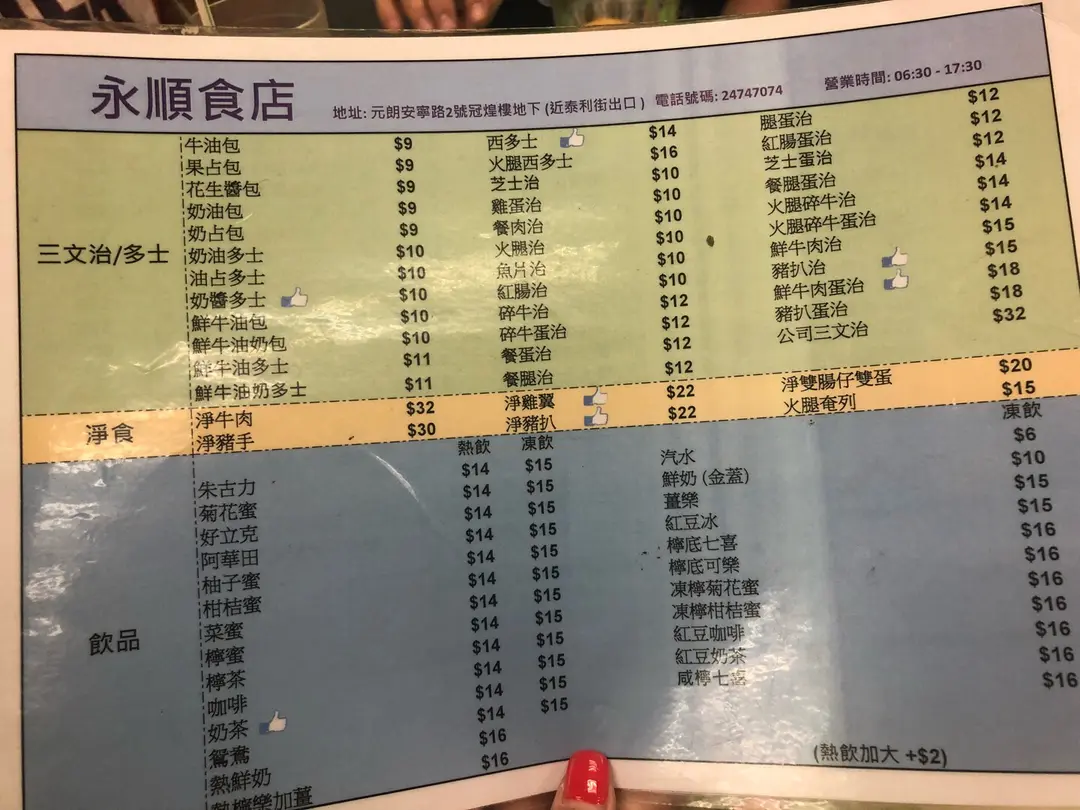 永順食店
地址: 元朗安寧路2號冠煌樓地下 (近泰利街出口) 電話號碼: 24747074
營業時間: 06:30 - 17:30
三文治/多士
牛油包 $9
果占包 $9
花生醬包 $9
奶油包 $9
奶占包 $9
奶油多士 $10
油占多士 $10
奶醬多士 $10
鮮牛油包 $10
鮮牛油奶包 $10
鮮牛油多士 $11
鮮牛油奶多士 $11
西多士 $14
火腿西多士 $16
芝士治 $10
雞蛋治 $10
餐肉治 $10
火腿治 $10
魚片治 $10
紅腸治 $10
碎牛治 $12
碎牛蛋治 $12
餐蛋治 $12
餐腿治 $12
腿蛋治 $12
紅腸蛋治 $12
芝士蛋治 $12
餐腿蛋治 $14
火腿碎牛治 $14
火腿碎牛蛋治 $14
鮮牛肉治 $15
豬扒治 $15
鮮牛肉蛋治 $18
豬扒蛋治 $18
公司三文治 $32
淨食
淨牛肉 $32
淨豬手 $30
淨雞翼 $22
淨豬扒 $22
淨雙腸仔雙蛋 $20
火腿奄列 $15
飲品
熱飲 凍飲
朱古力 $14 $15
菊花蜜 $14 $15
好立克 $14 $15
阿華田 $14 $15
柚子蜜 $14 $15
柑桔蜜 $14 $15
菜蜜 $14 $15
檸蜜 $14 $15
檸茶 $14 $15
咖啡 $14 $15
奶茶 $14 $15
鴛鴦 $14 $15
熱鮮奶 $16
熱檸樂加薑 $16
凍飲
汽水 $6
鮮奶 (金蓋) $10
薑樂 $15
紅豆冰 $15
檸底七喜 $16
檸底可樂 $16
凍檸菊花蜜 $16
凍檸柑桔蜜 $16
紅豆咖啡 $16
紅豆奶茶 $16
咸檸七喜 $16
(熱飲加大 +$2)